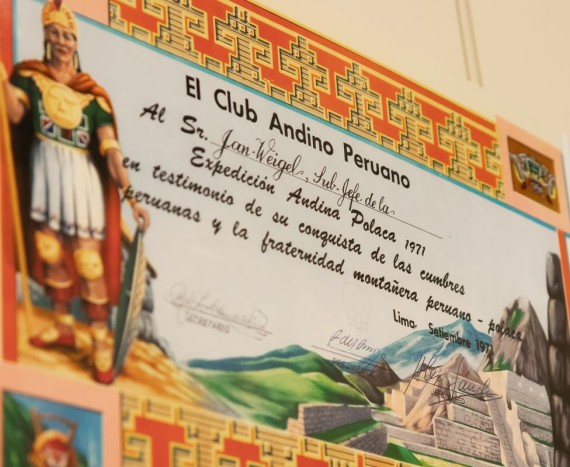 El Club Andino Peruano
Al Sr. Jan Weigel, Sub-Jefe de la
Expedición Andina Polaca 1971
en testimonio de su conquista de las cumbres
peruanas y la fraternidad montañera peruano - polaca
Lima, Setiembre 197
SECRETARIO